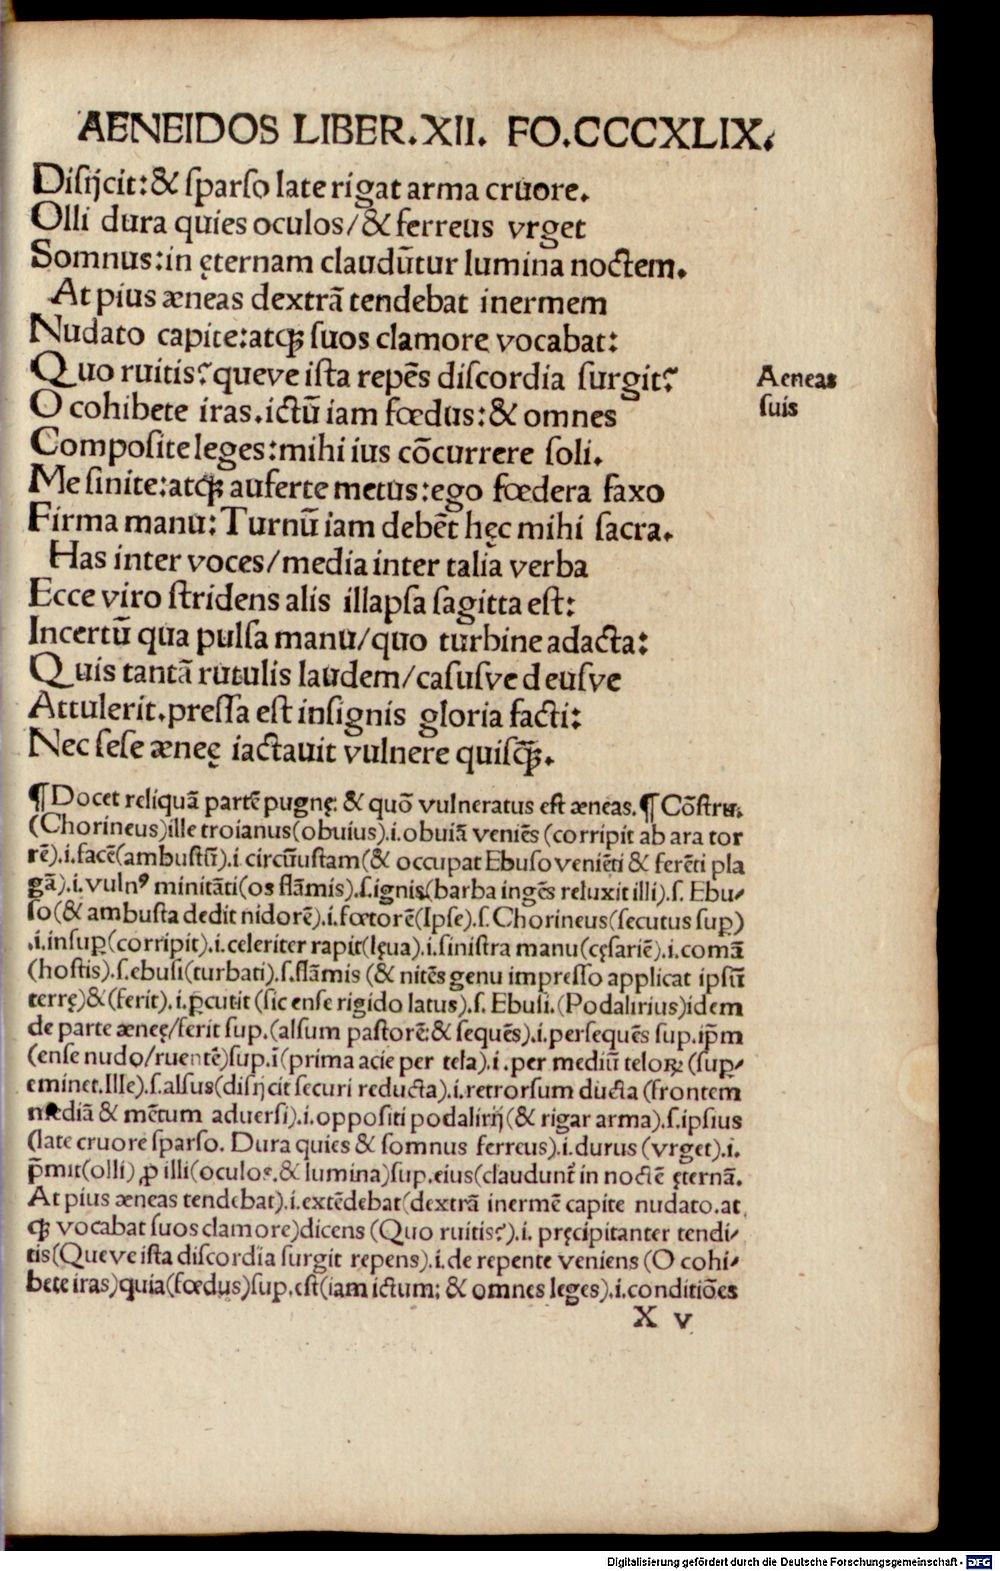 AENEIDOS LIBER.XII. FO.CCCXLIX.
Disijcit:& sparso late rigat arma cruore.
Olli dura quies oculos/& ferreus vrget
Somnus:in ęternam claudūtur lumina noctem.
At pius æneas dextrā tendebat inermem
Nudato capite:atqꝫ suos clamore vocabat:
Quo ruitis? queve ista repēs discordia surgit?
Aeneas
suis
O cohibete iras.ictū iam fœdus:& omnes
Composite leges:mihi ius cōcurrere soli.
Me sinite:atqꝫ auferte metus:ego fœdera faxo
Firma manu: Turnū iam debēt hęc mihi sacra.
Has inter voces/media inter talia verba
Ecce viro stridens alis illapsa sagitta est:
Incertū qua pulsa manu/quo turbine adacta:
Quis tantā rutulis laudem/casusve deusve
Attulerit.pressa est insignis gloria facti:
Nec sese æneę iactauit vulnere quisq̄ꝫ.
¶Docet reliquā partē pugnę: & quō vulneratus est æneas.¶ Cōstru.
(Chorineus)ille troianus(obuius).i.obuiā veniēs (corripit ab ara tor
rē).i.facē(ambustū).i.circūustam(& occupat Ebuso veniēti & ferēti pla
gā).i.vulnꝰ minitāti(os flāmis).s.ignis(barba ingēs reluxit illi).s. Ebu-
so(& ambusta dedit nidorē).i.fœtorē(Ipse).s. Chorineus(secutus suꝑ)
.i.insuꝑ(corripit).i.celeriter rapit(lęua).i.sinistra manu(cęsariē).i.comā
(hostis).s.ebusi(turbati).s.flāmis (& nitēs genu impresso applicat ipsū
terrę)&(ferit).i.ꝑcutit (sic ense rigido latus).s. Ebusi.(Podalirius)idem
de parte æneę/ferit sup.(alsum pastorē:& sequēs).i.persequēs sup.ip̄m
(ense nudo/ruentē)sup.ī(prima acie per tela).i.per mediū teloꝝ (suꝑ-
eminet.Ille).s.alsus(disijcit securi reducta).i.retrorsum ducta (frontem
mediā & mētum aduersi).i.oppositi podalirij(& rigar arma).s.ipsius
(late cruore sparso. Dura quies & somnus ferreus).i.durus (vrget).i.
p̄mit(olli) ꝓ illi(oculos.& lumina)sup.eius(claudunt̄ in noctē ęternā.
At pius æneas tendebat).i.extēdebat(dextrā inermē capite nudato.at
qꝫ vocabat suos clamore)dicens (Quo ruitis?).i. pręcipitanter tendi-
tis(Queve ista discordia surgit repens).i.de repente veniens (O cohi-
bete iras)quia(fœdus)sup.est(iam ictum: & omnes leges).i.conditiōes
X v
Digitalisierung gefördert durch die Deutsche Forschungsgemeinschaft - DFG